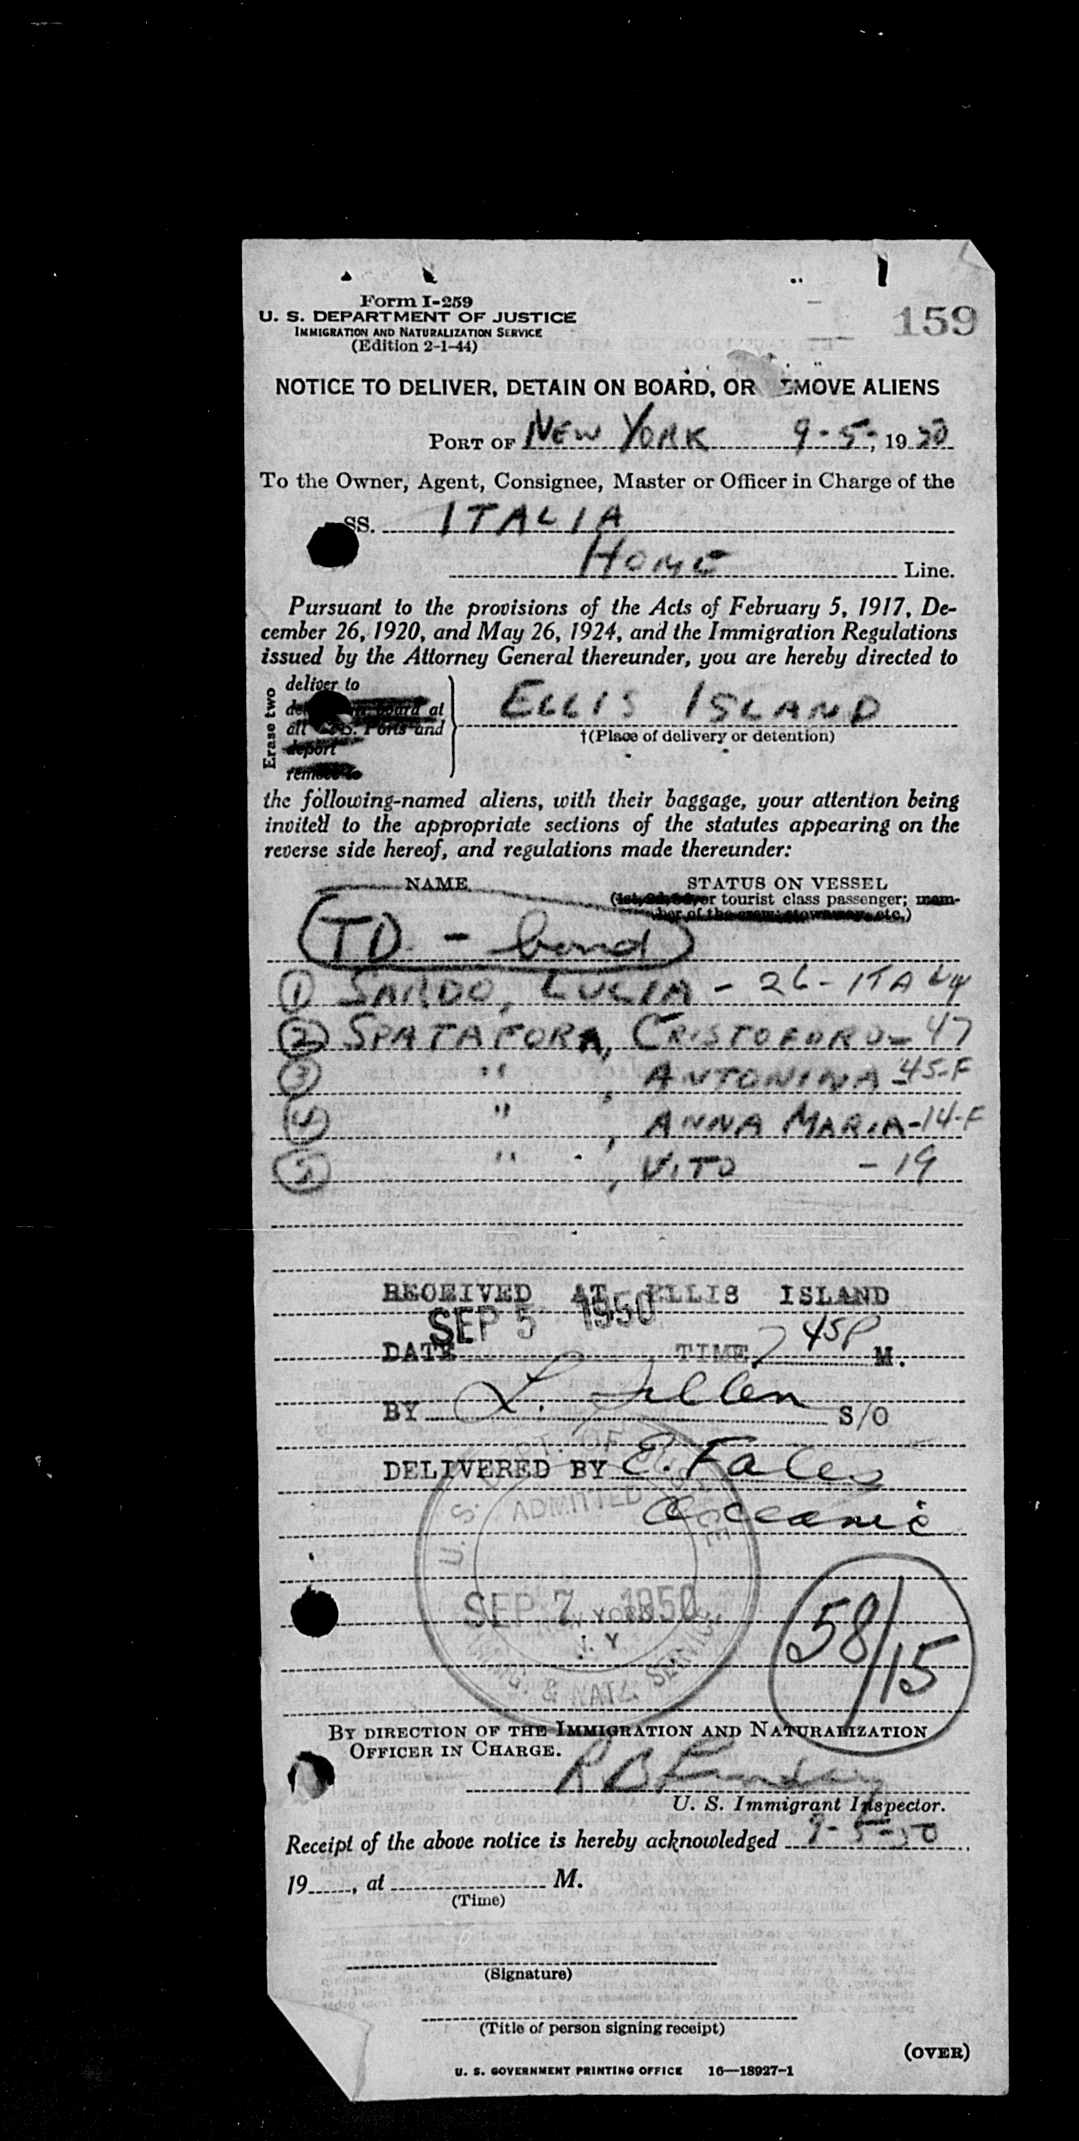 Form I-259
U. S. DEPARTMENT OF JUSTICE
IMMIGRATION AND NATURALIZATION SERVICE
(Edition 2-1-44)
159
NOTICE TO DELIVER, DETAIN ON BOARD, OR EMOVE ALIENS
PORT OF NEW YORK 9-5-, 1950
To the Owner, Agent, Consignee, Master or Officer in Charge of the
SS. ITALIA
HOME Line.
Pursuant to the provisions of the Acts of February 5, 1917, De-
cember 26, 1920, and May 26, 1924, and the Immigration Regulations
issued by the Attorney General thereunder, you are hereby directed to
Erase two
deliver to
board at
all U.S. Ports and
deport
remove to
ELLIS ISLAND
†(Place of delivery or detention)
the following-named aliens, with their baggage, your attention being
invited to the appropriate sections of the statutes appearing on the
reverse side hereof, and regulations made thereunder:
NAME STATUS ON VESSEL
(1st, 2d, or tourist class passenger; mem-
ber of the crew; stowaway, etc.)
TD - bond
1 SARDO, LUCIA - 26 - ITALY
2 SPATAFORA, CRISTOFORO - 47
3 " , ANTONINA 45-F
4 " , ANNA MARIA-14-F
5 " , VITO - 19
RECEIVED AT ELLIS ISLAND
SEP 5 1950
DATE TIME 7 45P M.
BY L. S/O
DELIVERED BY E. Fales
Oceanic
U. S. DEPT. OF JUSTICE
ADMITTED
SEP 7 1950
NEW YORK
N. Y.
IMMIG. & NATZ. SERVICE
58/15
BY DIRECTION OF THE IMMIGRATION AND NATURALIZATION
OFFICER IN CHARGE.
R B
U. S. Immigrant Inspector.
Receipt of the above notice is hereby acknowledged 9-5-50
19, at M.
(Time)
(Signature)
(Title of person signing receipt)
(OVER)
U. S. GOVERNMENT PRINTING OFFICE 16—18927-1